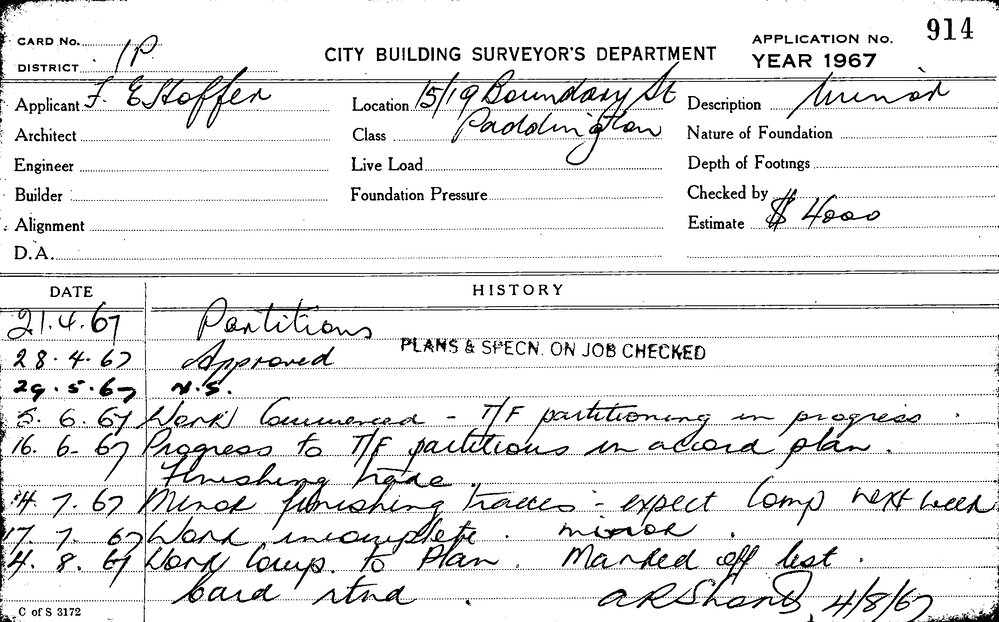 CARD No.
CITY BUILDING SURVEYOR'S DEPARTMENT
APPLICATION No. 914
DISTRICT 1P
YEAR 1967
Applicant F. E Hoffer
Location 15/19 Boundary St
Description Minor
Architect
Class Paddington
Nature of Foundation
Engineer
Live Load
Depth of Footings
Builder
Foundation Pressure
Checked by
Alignment
Estimate $ 4000
D.A.
DATE HISTORY
21.4.67 Partitions
28.4.67 Approved PLANS & SPECN. ON JOB CHECKED
29.5.67 N.S.
5.6.67 Work Commenced - T/F partitioning in progress.
16.6.67 Progress to T/F partitions in accord plan.
Finishing trade.
4.7.67 Minor finishing trades - expect Comp next week
17.7.67 Work incomplete. minor.
4.8.67 Work Comp. to Plan. Marked off list.
Card rtnd.
4/8/67
C of S 3172